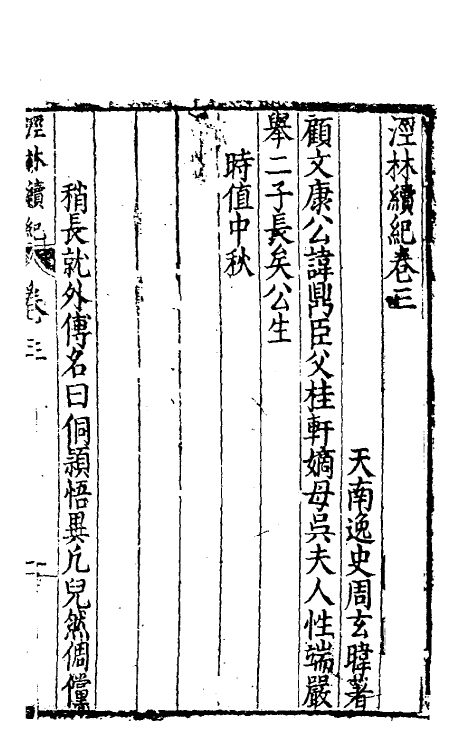 涇林續紀卷三
天南逸史周玄暐著
顧文康公諱鼎臣父桂軒嫡母吳夫人性端嚴
舉二子長矣公生
時值中秋
稍長就外傅名曰侗穎悟異凡兒然倜儻
涇林續紀 卷三